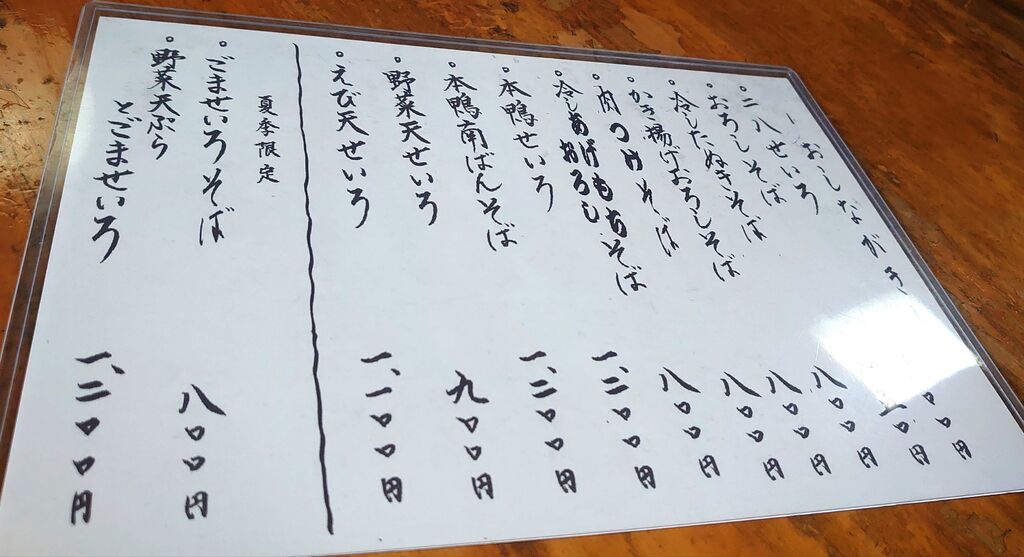 おしながき
二八せいろ 〇〇円
おろしそば 〇〇円
冷したぬきそば 八〇〇円
かき揚げおろしそば 八〇〇円
肉つけそば 八〇〇円
冷しあげもちおろしそば 八〇〇円
本鴨せいろ 一、二〇〇円
本鴨南ばんそば 一、二〇〇円
野菜天せいろ 九〇〇円
えび天せいろ 一、一〇〇円
夏季限定
ごませいろそば 八〇〇円
野菜天ぷら
とごませいろ 一、二〇〇円